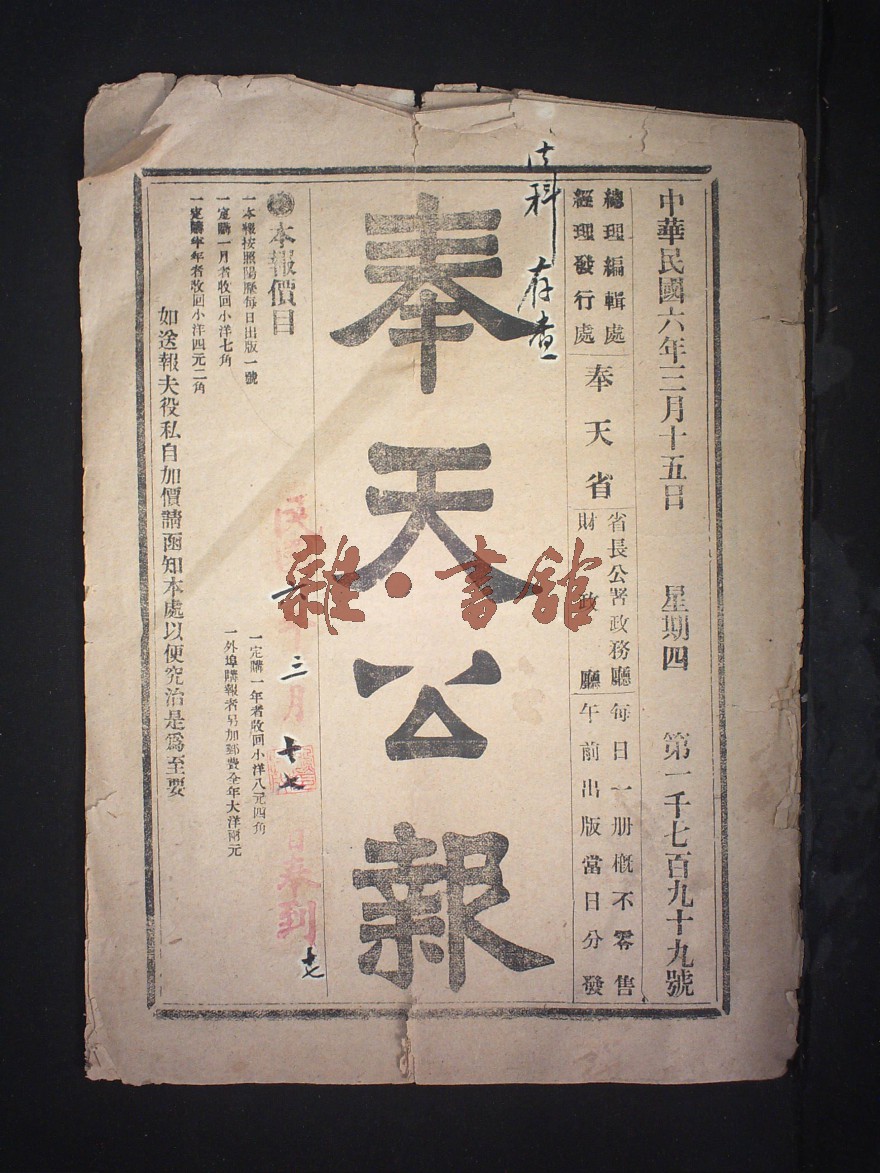 中華民國六年三月十五日　星期四　第一千七百九十九號
總理編輯處
經理發行處
奉天省
省長公署政務廳
財政廳
每日一册概不零售
午前出版當日分發
科存查
奉天公報
本報價目
一本報按照陽歷每日出版一號
一定購一月者收回小洋七角
一定購半年者收回小洋四元二角
一定購一年者收回小洋八元四角
一外埠購報者另加郵費全年大洋兩元
如送報夫役私自加價請函知本處以便究治是爲至要
民國六年三月十七日奉到
雜·書館